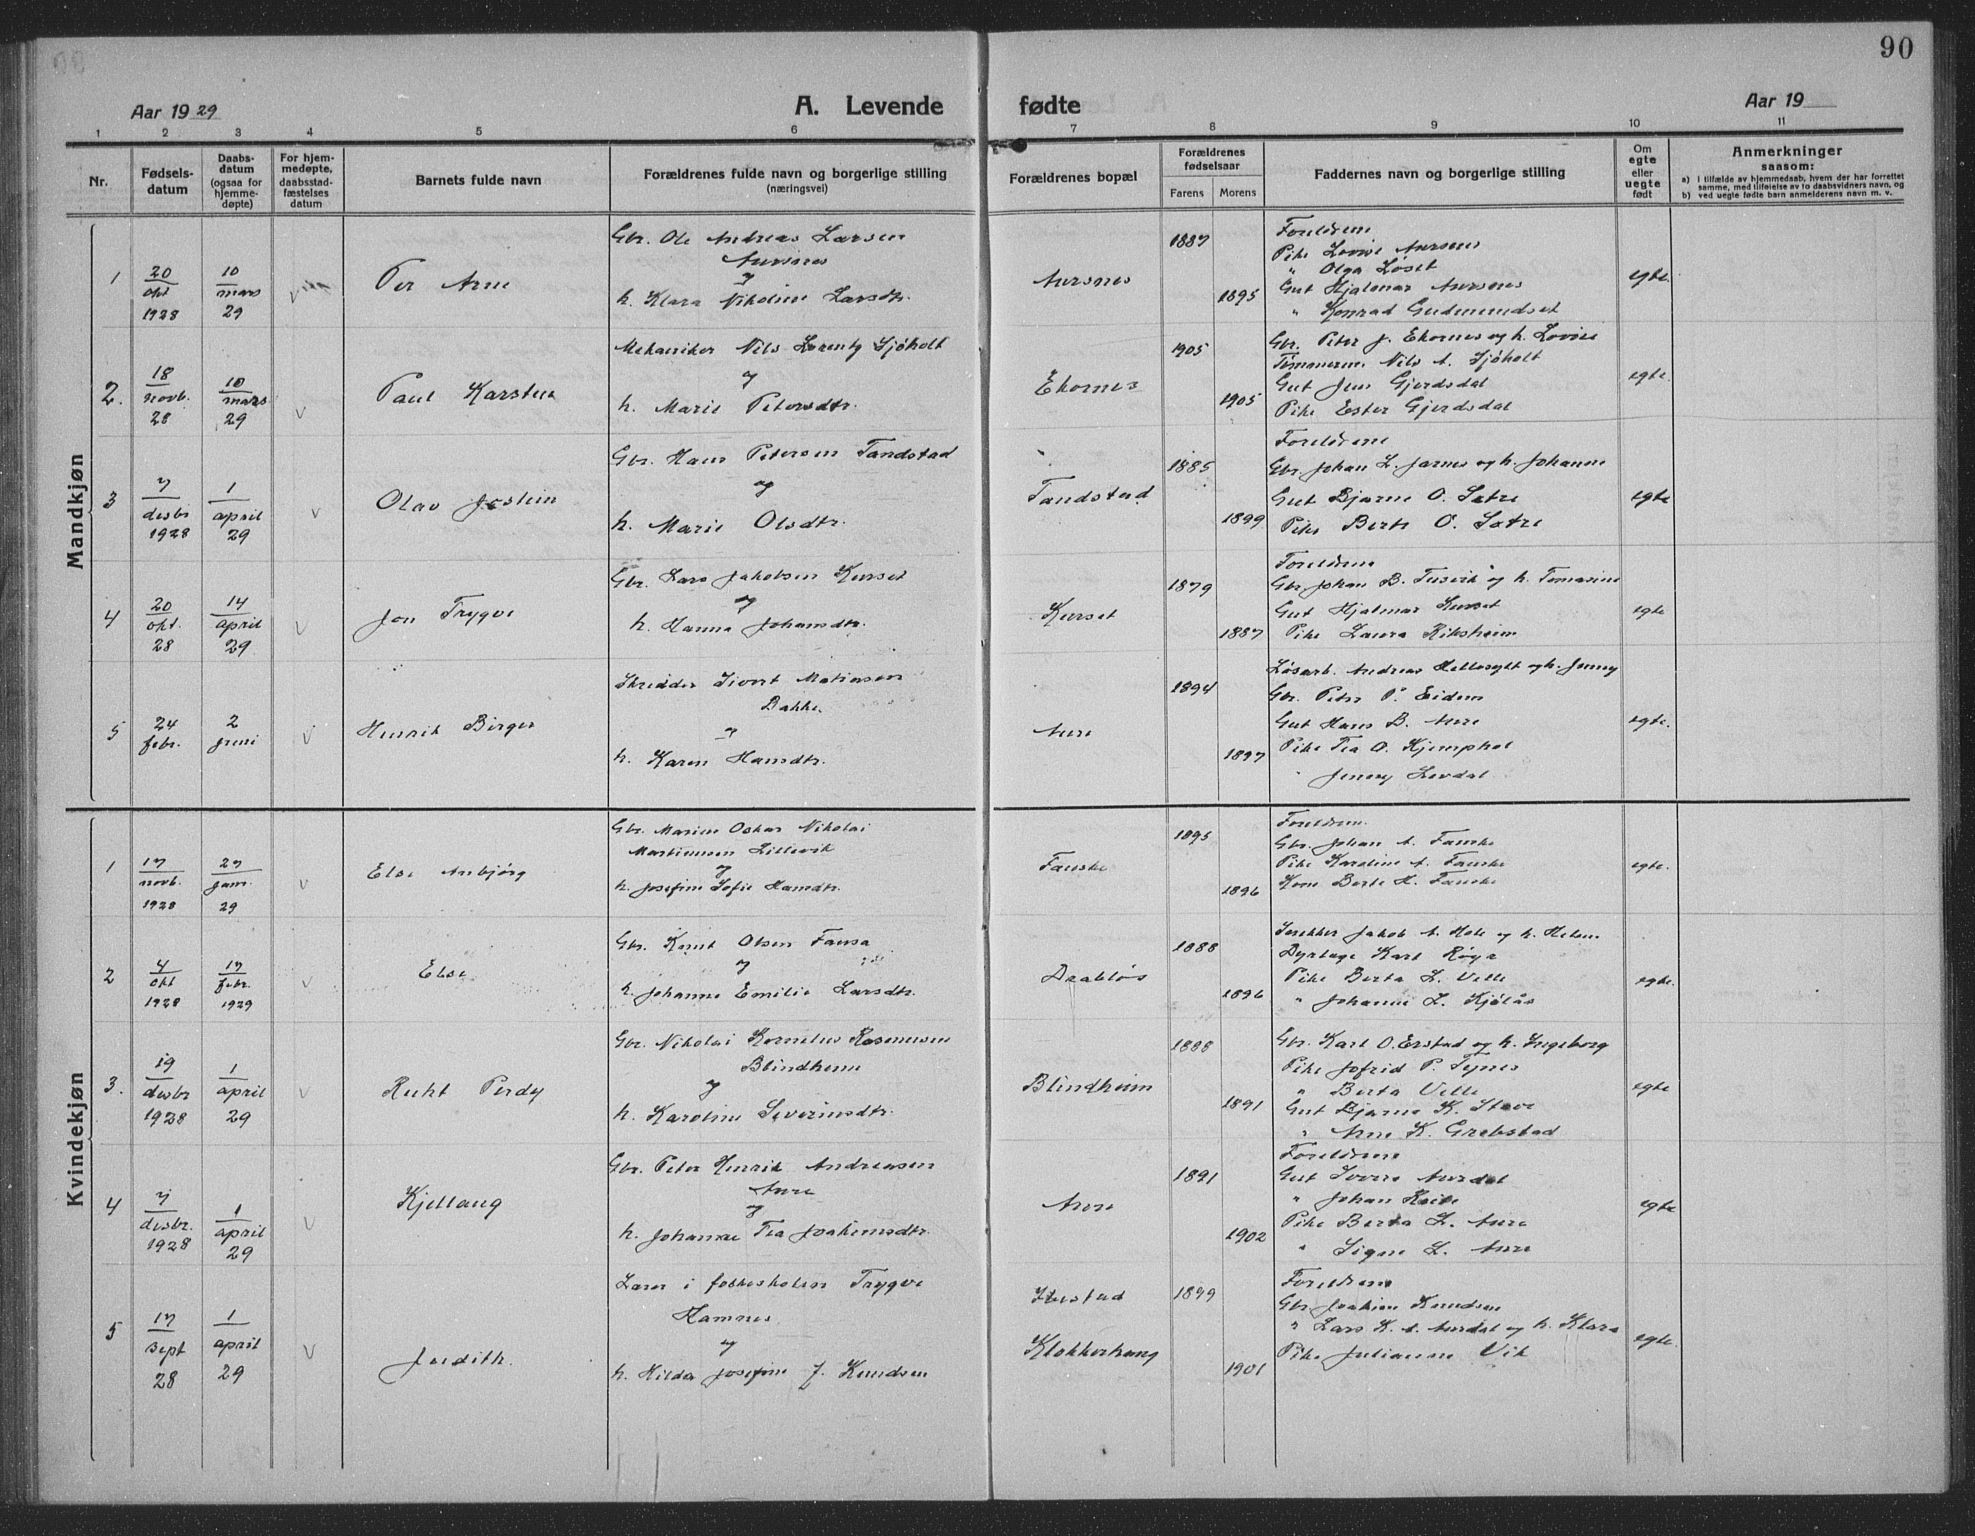 90
Aar 1929
A. Levende fødte
Aar 19
1 2 3 4 5 6 7 8 9 10 11
Nr.
Fødsels-
datum
Daabs-
datum
(ogsaa for
hjemme-
døpte)
For hjem-
medøpte,
daabsstad-
fæstelses
datum
Barnets fulde navn
Forældrenes fulde navn og borgerlige stilling
(næringsvei)
Forældrenes bopæl
Forældrenes
fødselsaar
Farens Morens
Faddernes navn og borgerlige stilling
Om
egte
eller
uegte
født
Anmerkninger
saasom:
a) I tilfælde av hjemmedaab, hvem der har forrettet
samme, med tilføielse av to daabsvidners navn, og
b) ved uegte fødte barn anmelderens navn m. v.
Mandkjøn
1
20
okt
1928
10
mars
29
v
Per Arne
Gbr. Ole Andreas Larsen
Aursnes
og
h. Klara Nikoline Larsdtr.
Aursnes
1887
1895
Foreldrene
Pike Lovise Aursnes
" Olga Løset
Gut Hjalmar Aursnes
" Konrad Gudmundset
egte.
2.
18
novb.
28
10
mars
29
v
Paul Karsten
Mekaniker Nils Lorentz Sjøholt
og
h. Marie Petersdtr.
Ekornes
1905
1905
Gbr. Peter J. Ekornes og h. Lovise
Tømmerm. Nils A. Sjøholt
Gut Jens Gjerdsdal
Pike Ester Gjerdsdal
egte.
3
7
desbr
1928
1
april
29
v
Olav Jostein
Gbr. Hans Petersen Tandstad
og
h. Marie Olsdtr.
Tandstad
1885
1899
Foreldrene
Gbr. Johan L. Jarnes og h. Johanne
Gut Bjarne O. Satre
Pike Berte O. Satre
egte
4
20
okt.
28
14
april
29
v
Jon Trygve
Gbr. Lars Jakobsen Kurset
og
h. Hanna Johansdtr.
Kurset
1879
1887
Foreldrene
Gbr. Johan B. Tusvik og h. Tomasine
Gut Hjalmar Kurset
Pike Laura Riksheim
egte
5
24
febr.
2
juni
v
Henrik Birger
Skredder Sivert Matiasen
Bakke.
og
h. Karen Hansdtr.
Aure
1894
1897
Løsarb. Andreas Hellesylt og h. Jenny
Gbr. Peter P. Eidem
Gut Hans B. Aure
Pike Tea O. Kjemphol
" Jenny Levdal
egte.
Kvindekjøn
1
17
novb.
1928
27
janr.
29
v
Else Anbjørg
Gbr. Marius Oskar Nikolai
Martinusen Lillevik
og
h. Josefine Sofie Hansdtr.
Fauske
1895
1896
Foreldrene.
Gbr. Johan A. Fauske
Pike Karoline A. Fauske
Kone Berte H. Fauske
egte.
2
4
okt
1928
17
febr.
1929
v
Else
Gbr. Knut Olsen Fausa
og
h. Johanne Emilie Larsdtr.
Drabløs
1888
1896
Snekker Jakob A. Hole og h. Helene
Dyrlæge Karl Røys
Pike Berta L. Velle
" Johanne L. Kjølås
egte.
3.
19
desbr
1928
1
april
29
v
Ruht Perdy
Gbr. Nikolai Kornelius Rasmussen
Blindheim
og
h. Karoline Severinsdtr.
Blindheim
1888
1891
Gbr. Karl O. Erstad og h. Ingeborg
Pike Jofrid P. Tynes
" Berta Velle
Gut Bjarne K. Stave
" Arne K. Grebstad
egte
4
7
desbr.
1928
1
april
29
v
Kjellaug
Gbr. Peter Henrik Andreasen
Aure
og
h. Johanne Tea Joakimsdtr.
Aure
1891
1902
Foreldrene
Gut Sverre Aurdal
" Johan
Pike Berta L. Aure
" Signe L. Aure
egte
5
17
sept
28
1
april
29
v
Judith.
Lærer i folkeskolen Trygve
Hamnes
og
h. Hilda Josefine J. Knudsen
Ibestad
Klokkerhaug
1899
1901
Foreldrene
Gbr Joakim Knudsen
" Lars K. A. Aurdal og h. Klara
Pike Julianne Vik
egte.